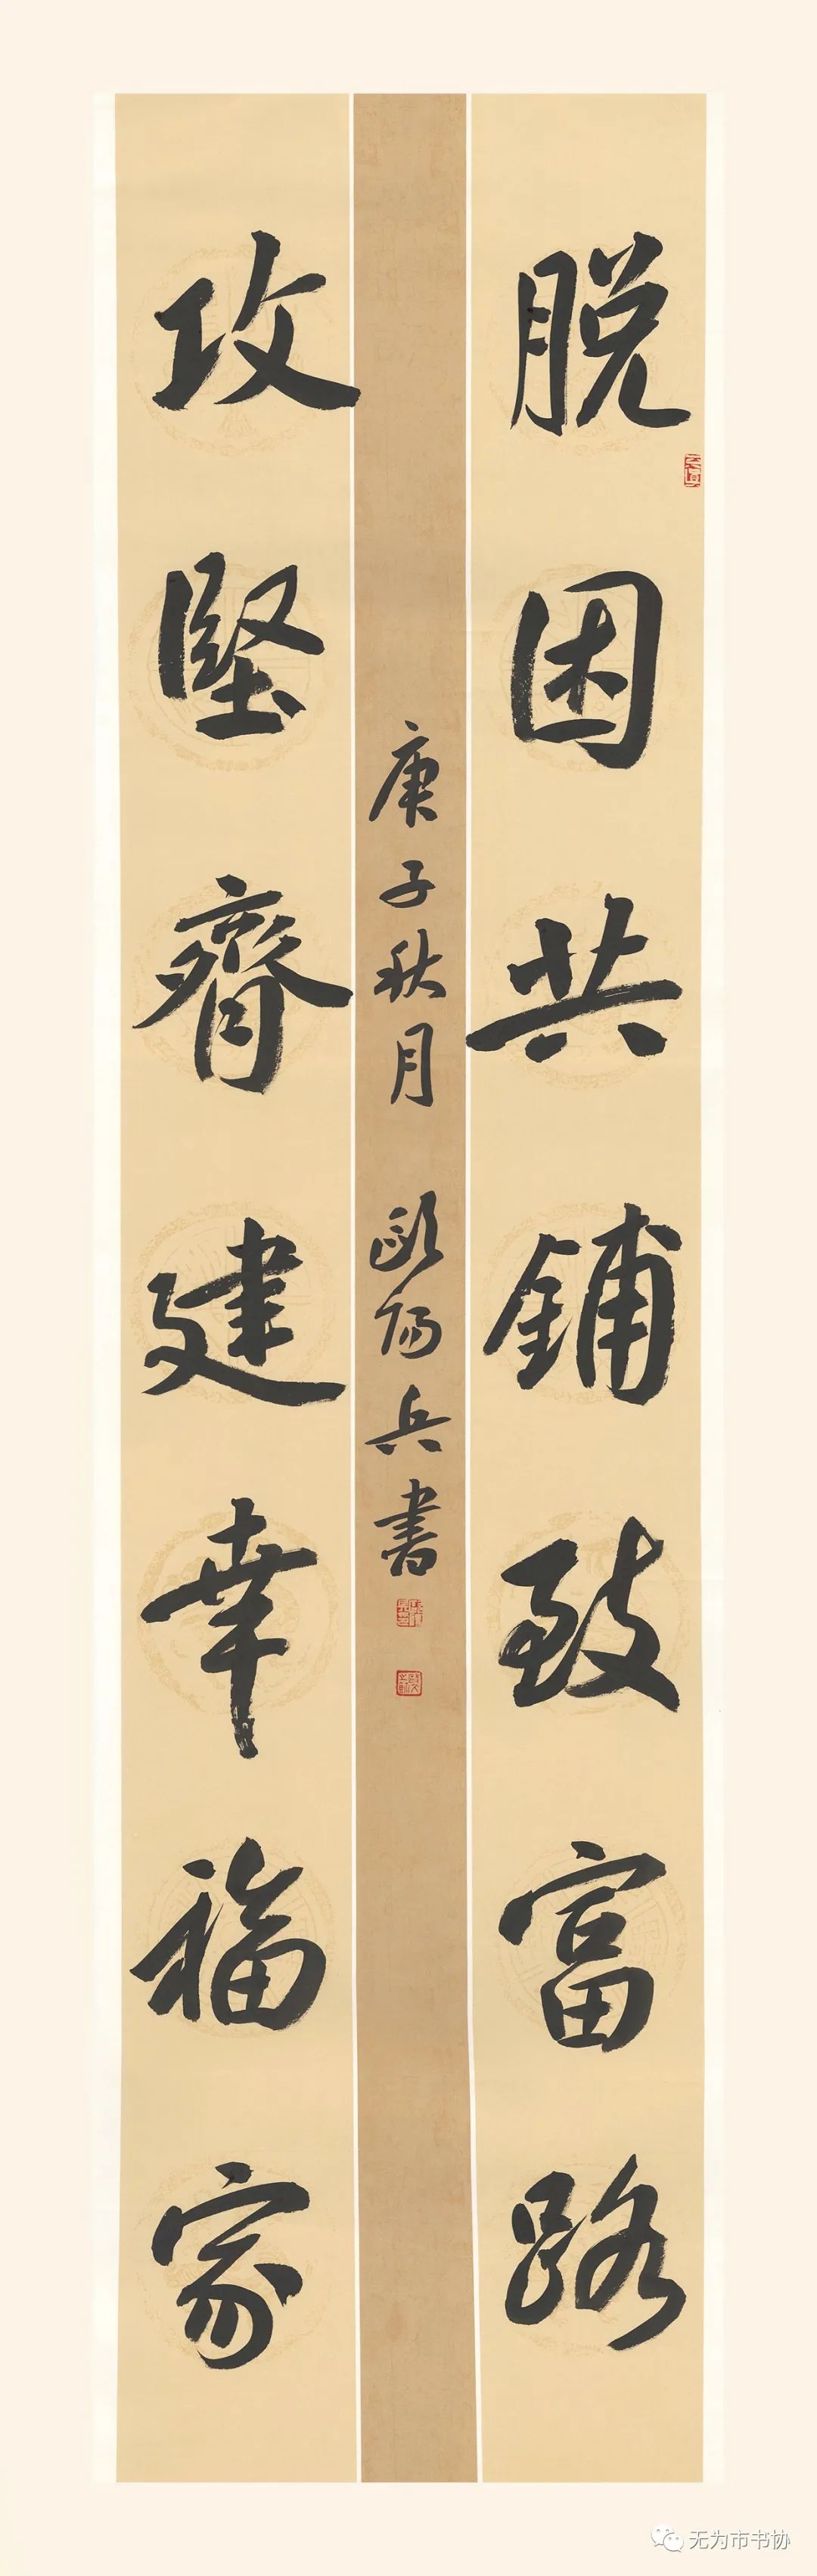 脱困共鋪致富路
攻堅齊建幸福家
庚子秋月 歐陽兵書
无为市书协